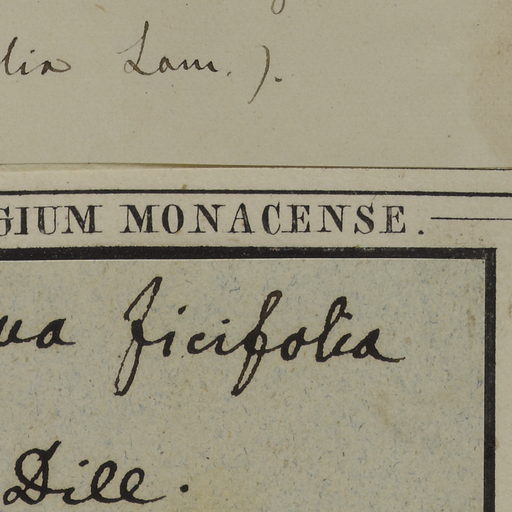 lia Lam.).
GIUM MONACENSE.
ua ficifolia
Dill.